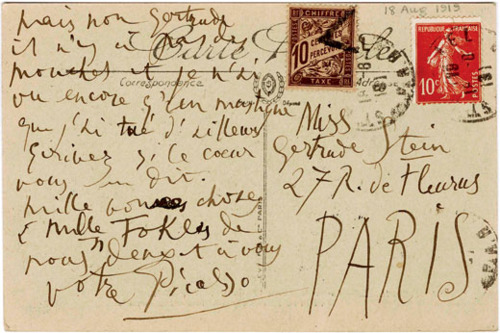 mais non gertrude
il n'y a pas de
mouches et je n'ai
vu encore q'un mostique
que j'ai tué d'ailleurs
Ecrivez si le coeur
vous en dit.
mille bonnes choses
& mille Fokes de
nous deux et à vous
votre Picasso
Carte Postale
Correspondance
18 Aug 1919
CHIFFRE
10
CENTIMES
A PERCEVOIR
TAXE
REPUBLIQUE FRANÇAISE
10c
POSTES
Miss
Gertrude Stein
27 R. de Fleurus
PARIS